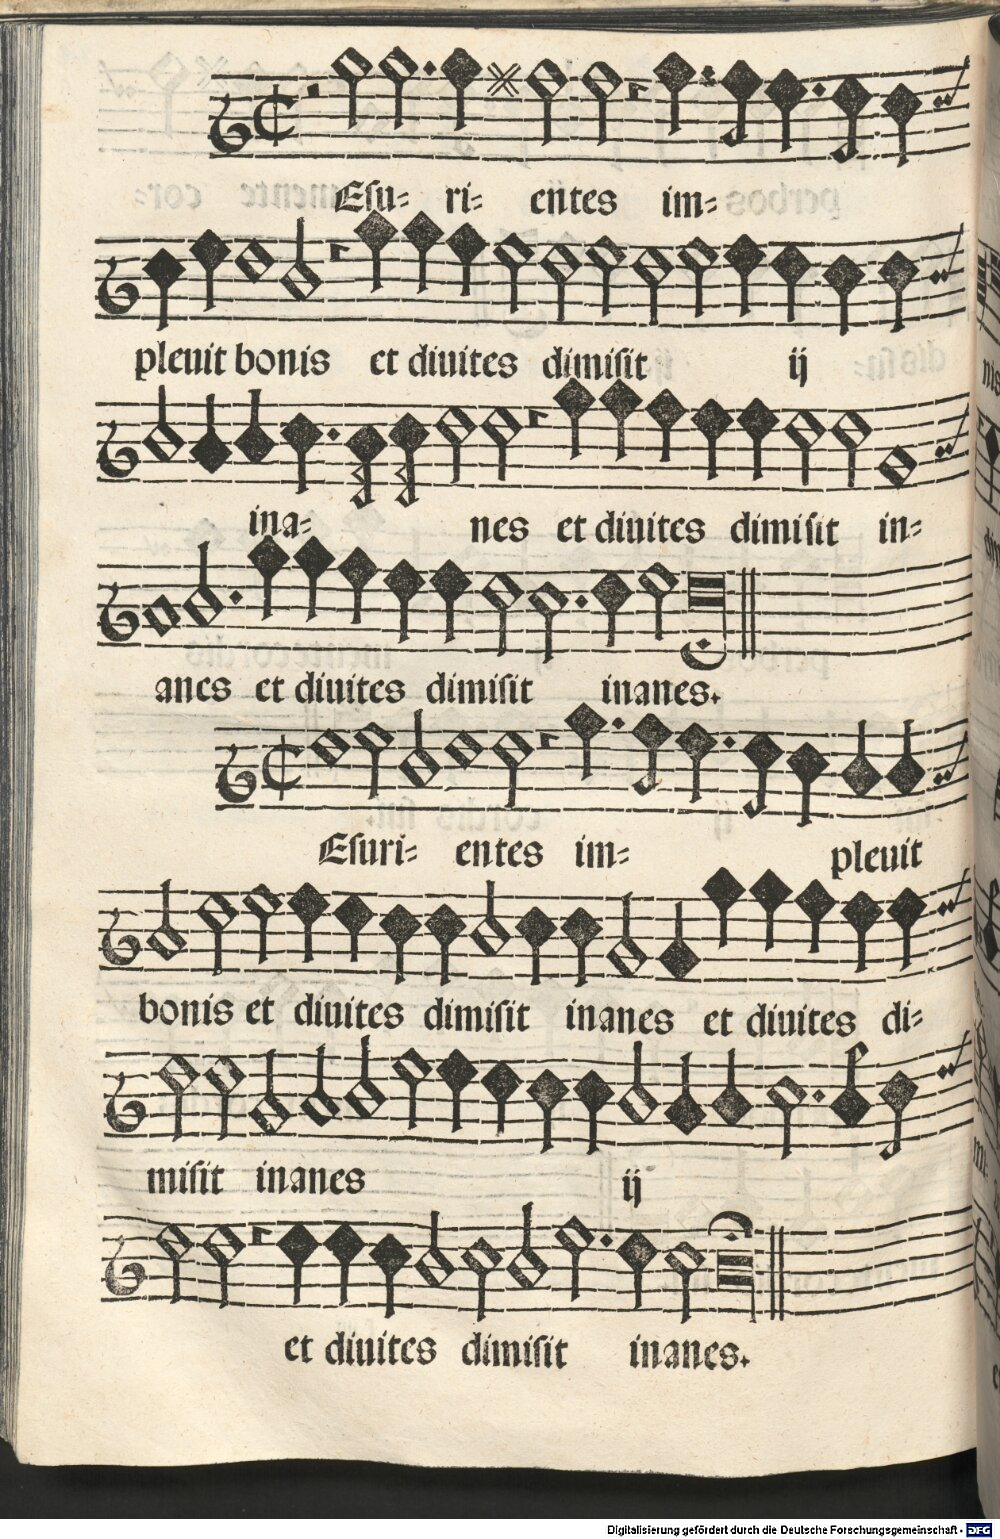 Esu- ri- entes im-
pleuit bonis et diuites dimisit ij
ina- nes et diuites dimisit in-
anes et diuites dimisit inanes.
Esuri- entes im- pleuit
bonis et diuites dimisit inanes et diuites di-
misit inanes ij
et diuites dimisit inanes.
Digitalisierung gefördert durch die Deutsche Forschungsgemeinschaft - DFG